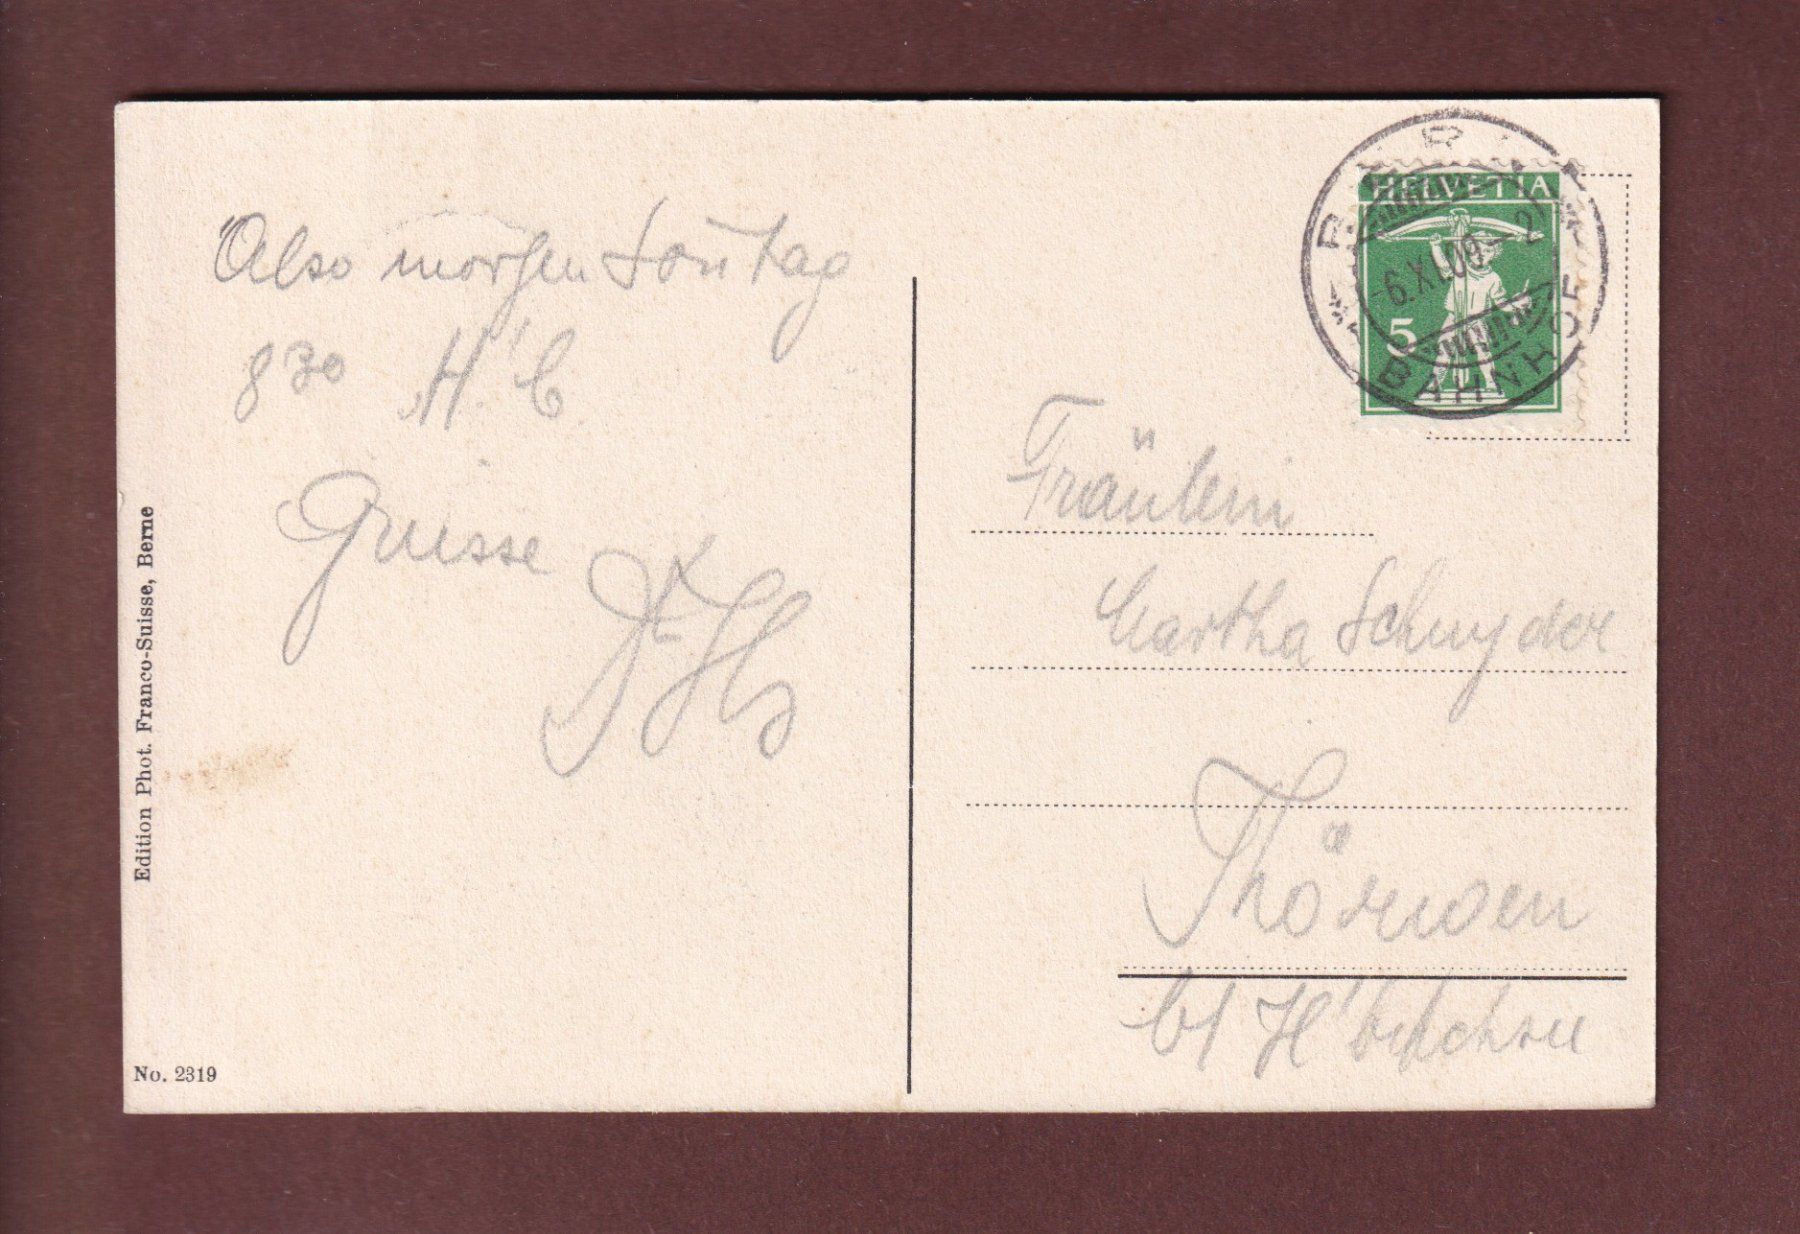 Also morgen Sonntag
8 30 H'B
Grüsse
Edition Phot. Franco-Suisse, Berne
No. 2319
HELVETIA
5
6.XI.09 - 2
BAHNHOF
Fräulein
Martha Schnyder
Thörigen
b/ H'buchsee